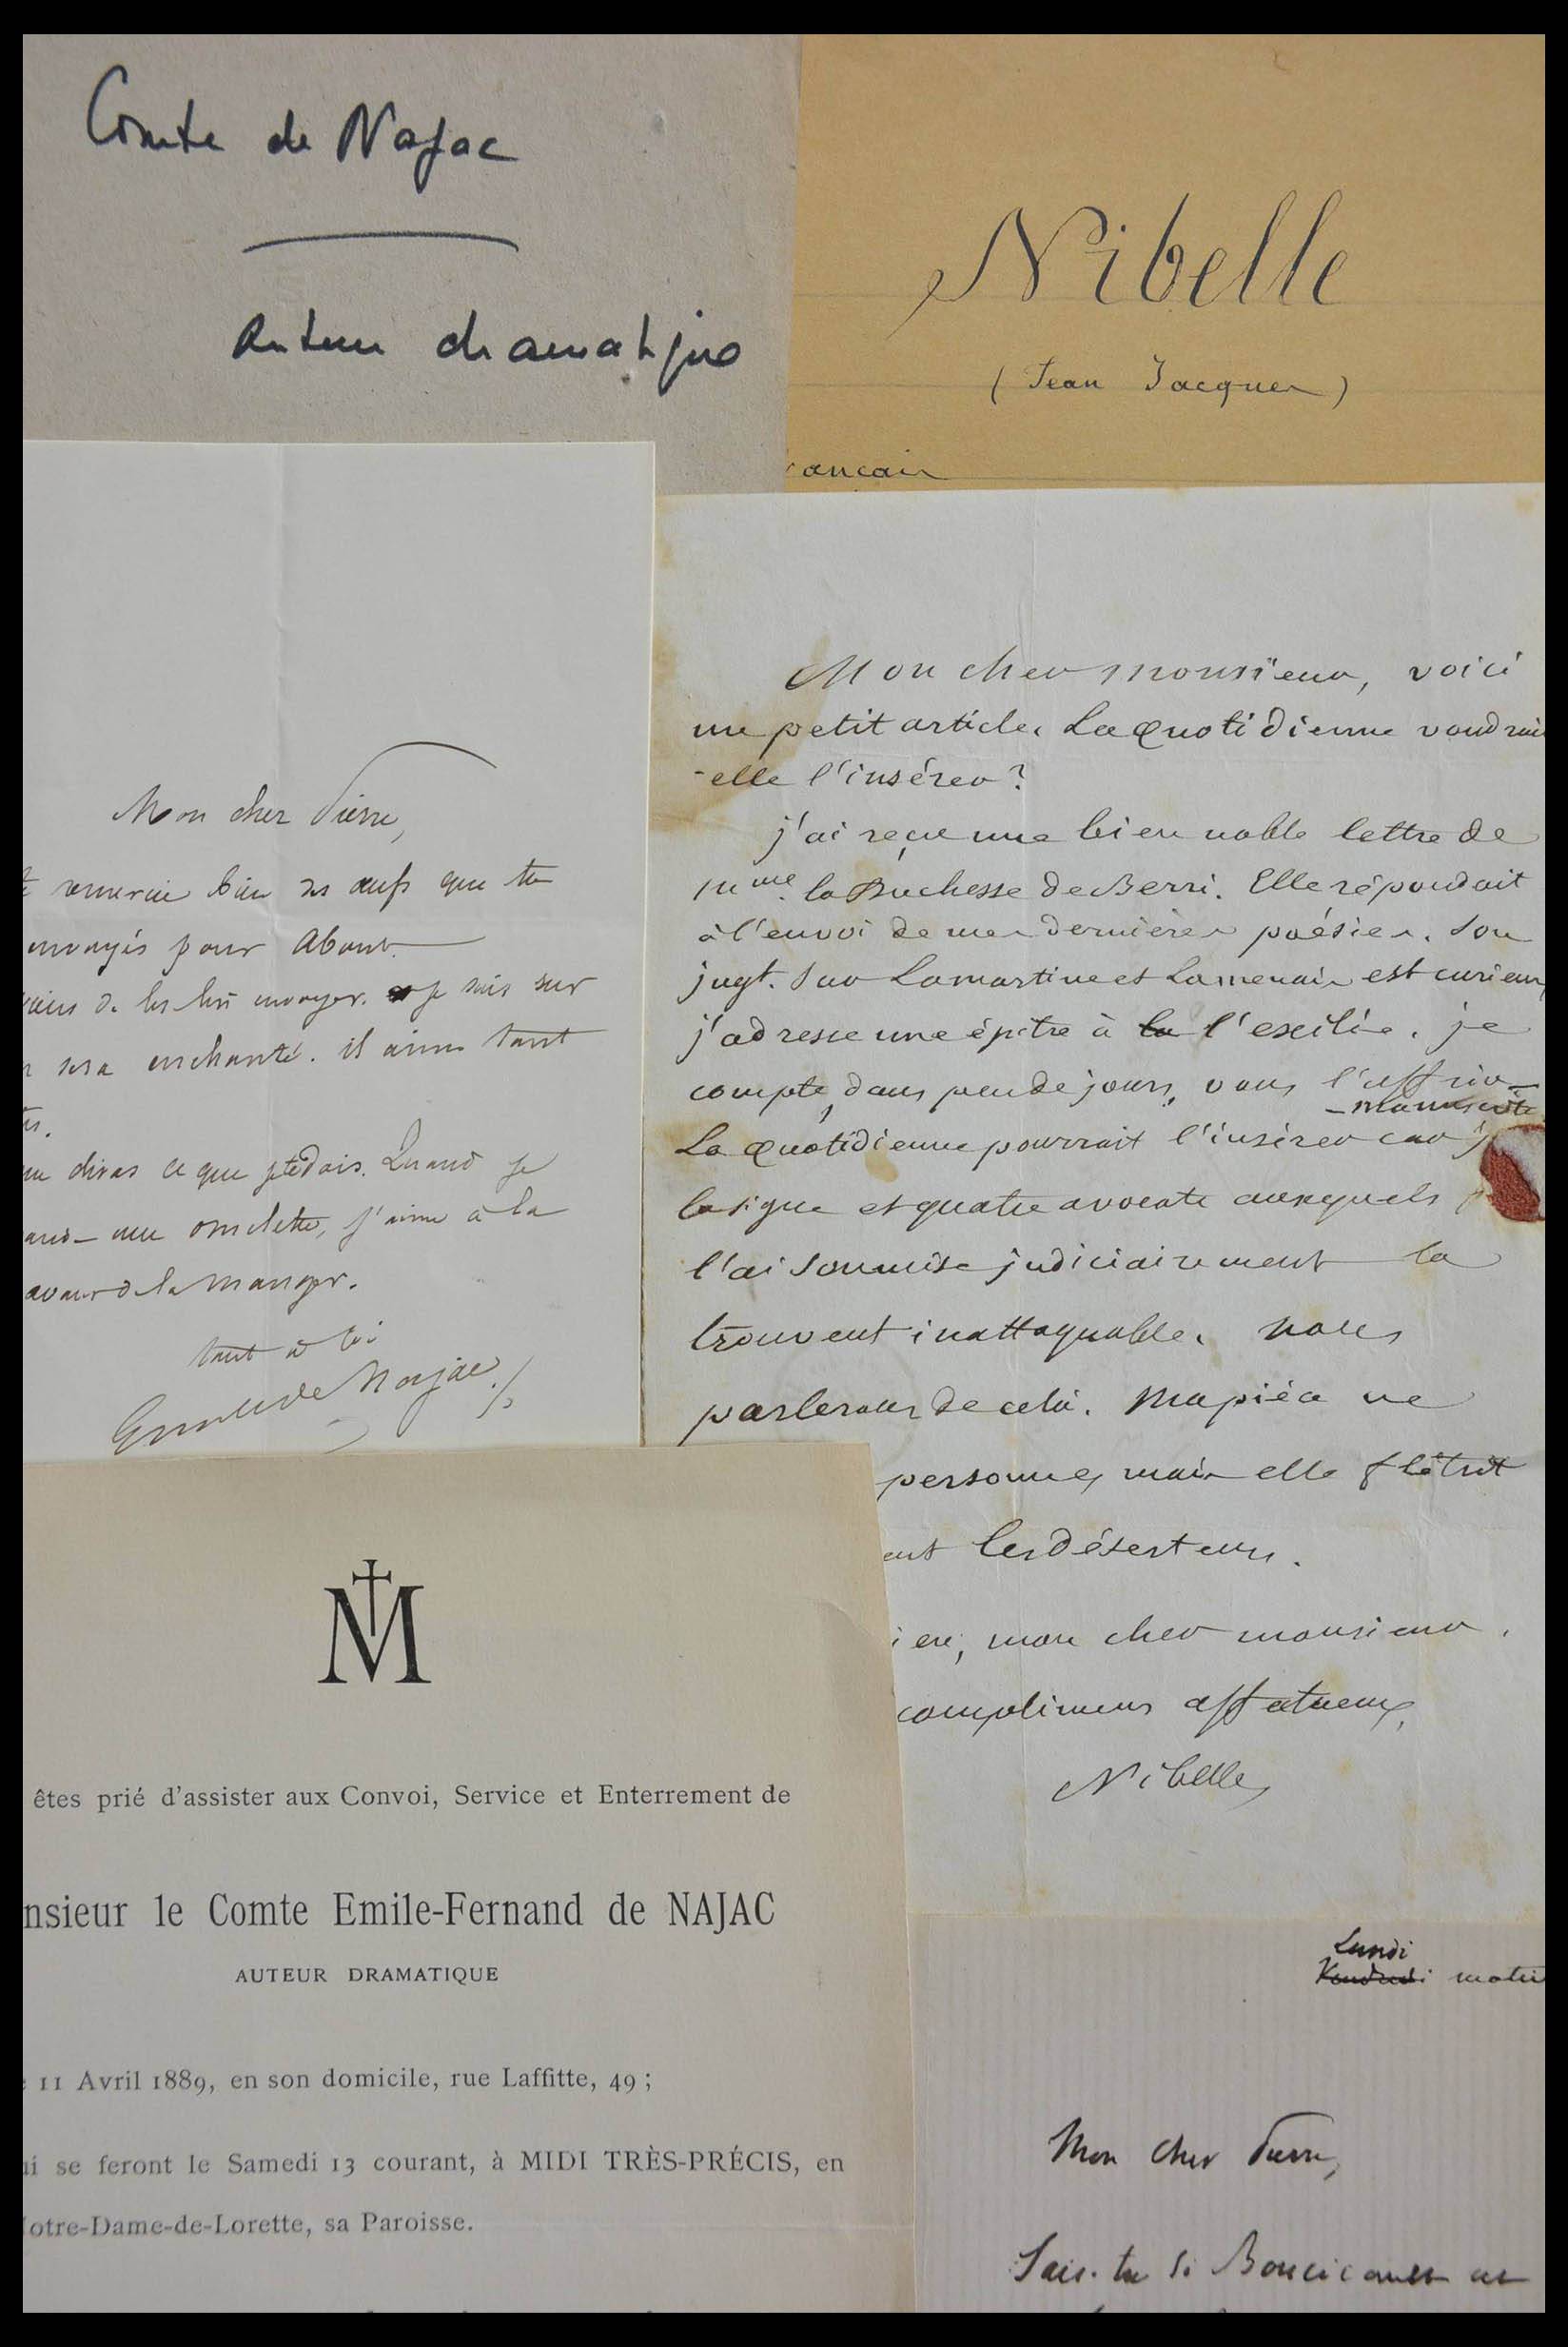 Comte de Najac
Auteur dramatique
Nibelle
(Jean Jacques)
ançais
Mon cher Pierre,
remercie bien des œufs que tu
envoyés pour About.
de les lui envoyer. je suis sur
sera enchanté. il aime tant
me diras ce que je te dois. Quand je
une omelette, j'aime à la
avant de la manger.
tout à toi
Emile de Najac
Mon cher monsieur, voici
un petit article. La Quotidienne voudrait
-elle l'insérer?
j'ai reçu une bien noble lettre de
Mme. la Duchesse de Berri. Elle répondait
à l'envoi de mes dernières poésies. Son
jugt. sur Lamartine et Lamenais est curieux,
j'adresse une épitre à la l'exilée. je
compte, dans peu de jours, vous l'offrir
- manuscrite
La Quotidienne pourrait l'insérer car j
la signe et quatre avocats auxquels j
l'ai soumise judiciairement la
trouvent inattaquable. nous
parlerons de cela. Ma pièce ne
personne, mais elle flétrit
ent les déserteurs.
ien, mon cher monsieur.
complimens affectueux,
Nibelle
M
êtes prié d'assister aux Convoi, Service et Enterrement de
nsieur le Comte Emile-Fernand de NAJAC
AUTEUR DRAMATIQUE
11 Avril 1889, en son domicile, rue Laffitte, 49 ;
ui se feront le Samedi 13 courant, à MIDI TRÈS-PRÉCIS, en
otre-Dame-de-Lorette, sa Paroisse.
Lundi
Vendredi matin
Mon cher Pierre,
Sais-tu si Boucicault est